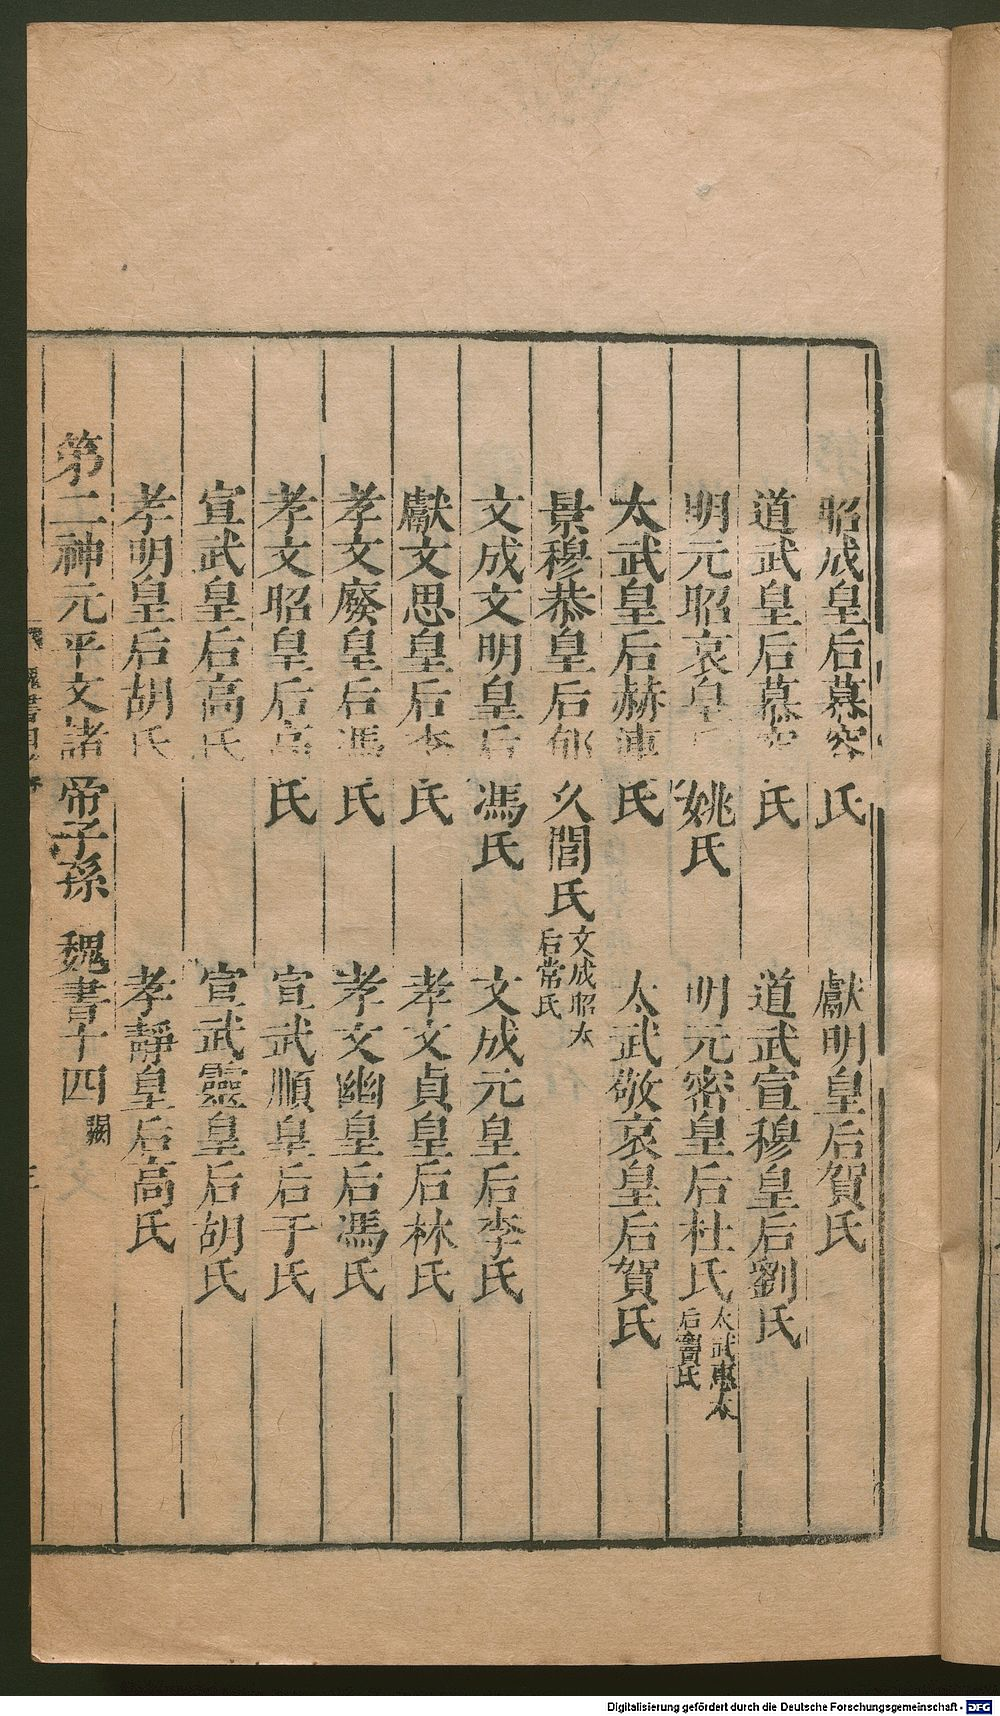 昭成皇后慕容氏　獻明皇后賀氏
道武皇后慕容氏　道武宣穆皇后劉氏
明元昭哀皇后姚氏　明元密皇后杜氏太武惠太后竇氏
太武皇后赫連氏　太武敬哀皇后賀氏
景穆恭皇后郁久閭氏文成昭太后常氏
文成文明皇后馮氏　文成元皇后李氏
獻文思皇后李氏　孝文貞皇后林氏
孝文廢皇后馮氏　孝文幽皇后馮氏
孝文昭皇后高氏　宣武順皇后于氏
宣武皇后高氏　宣武靈皇后胡氏
孝明皇后胡氏　孝靜皇后高氏
第二神元平文諸帝子孫　魏書十四闕
魏書目
三
Digitalisierung gefördert durch die Deutsche Forschungsgemeinschaft - DFG